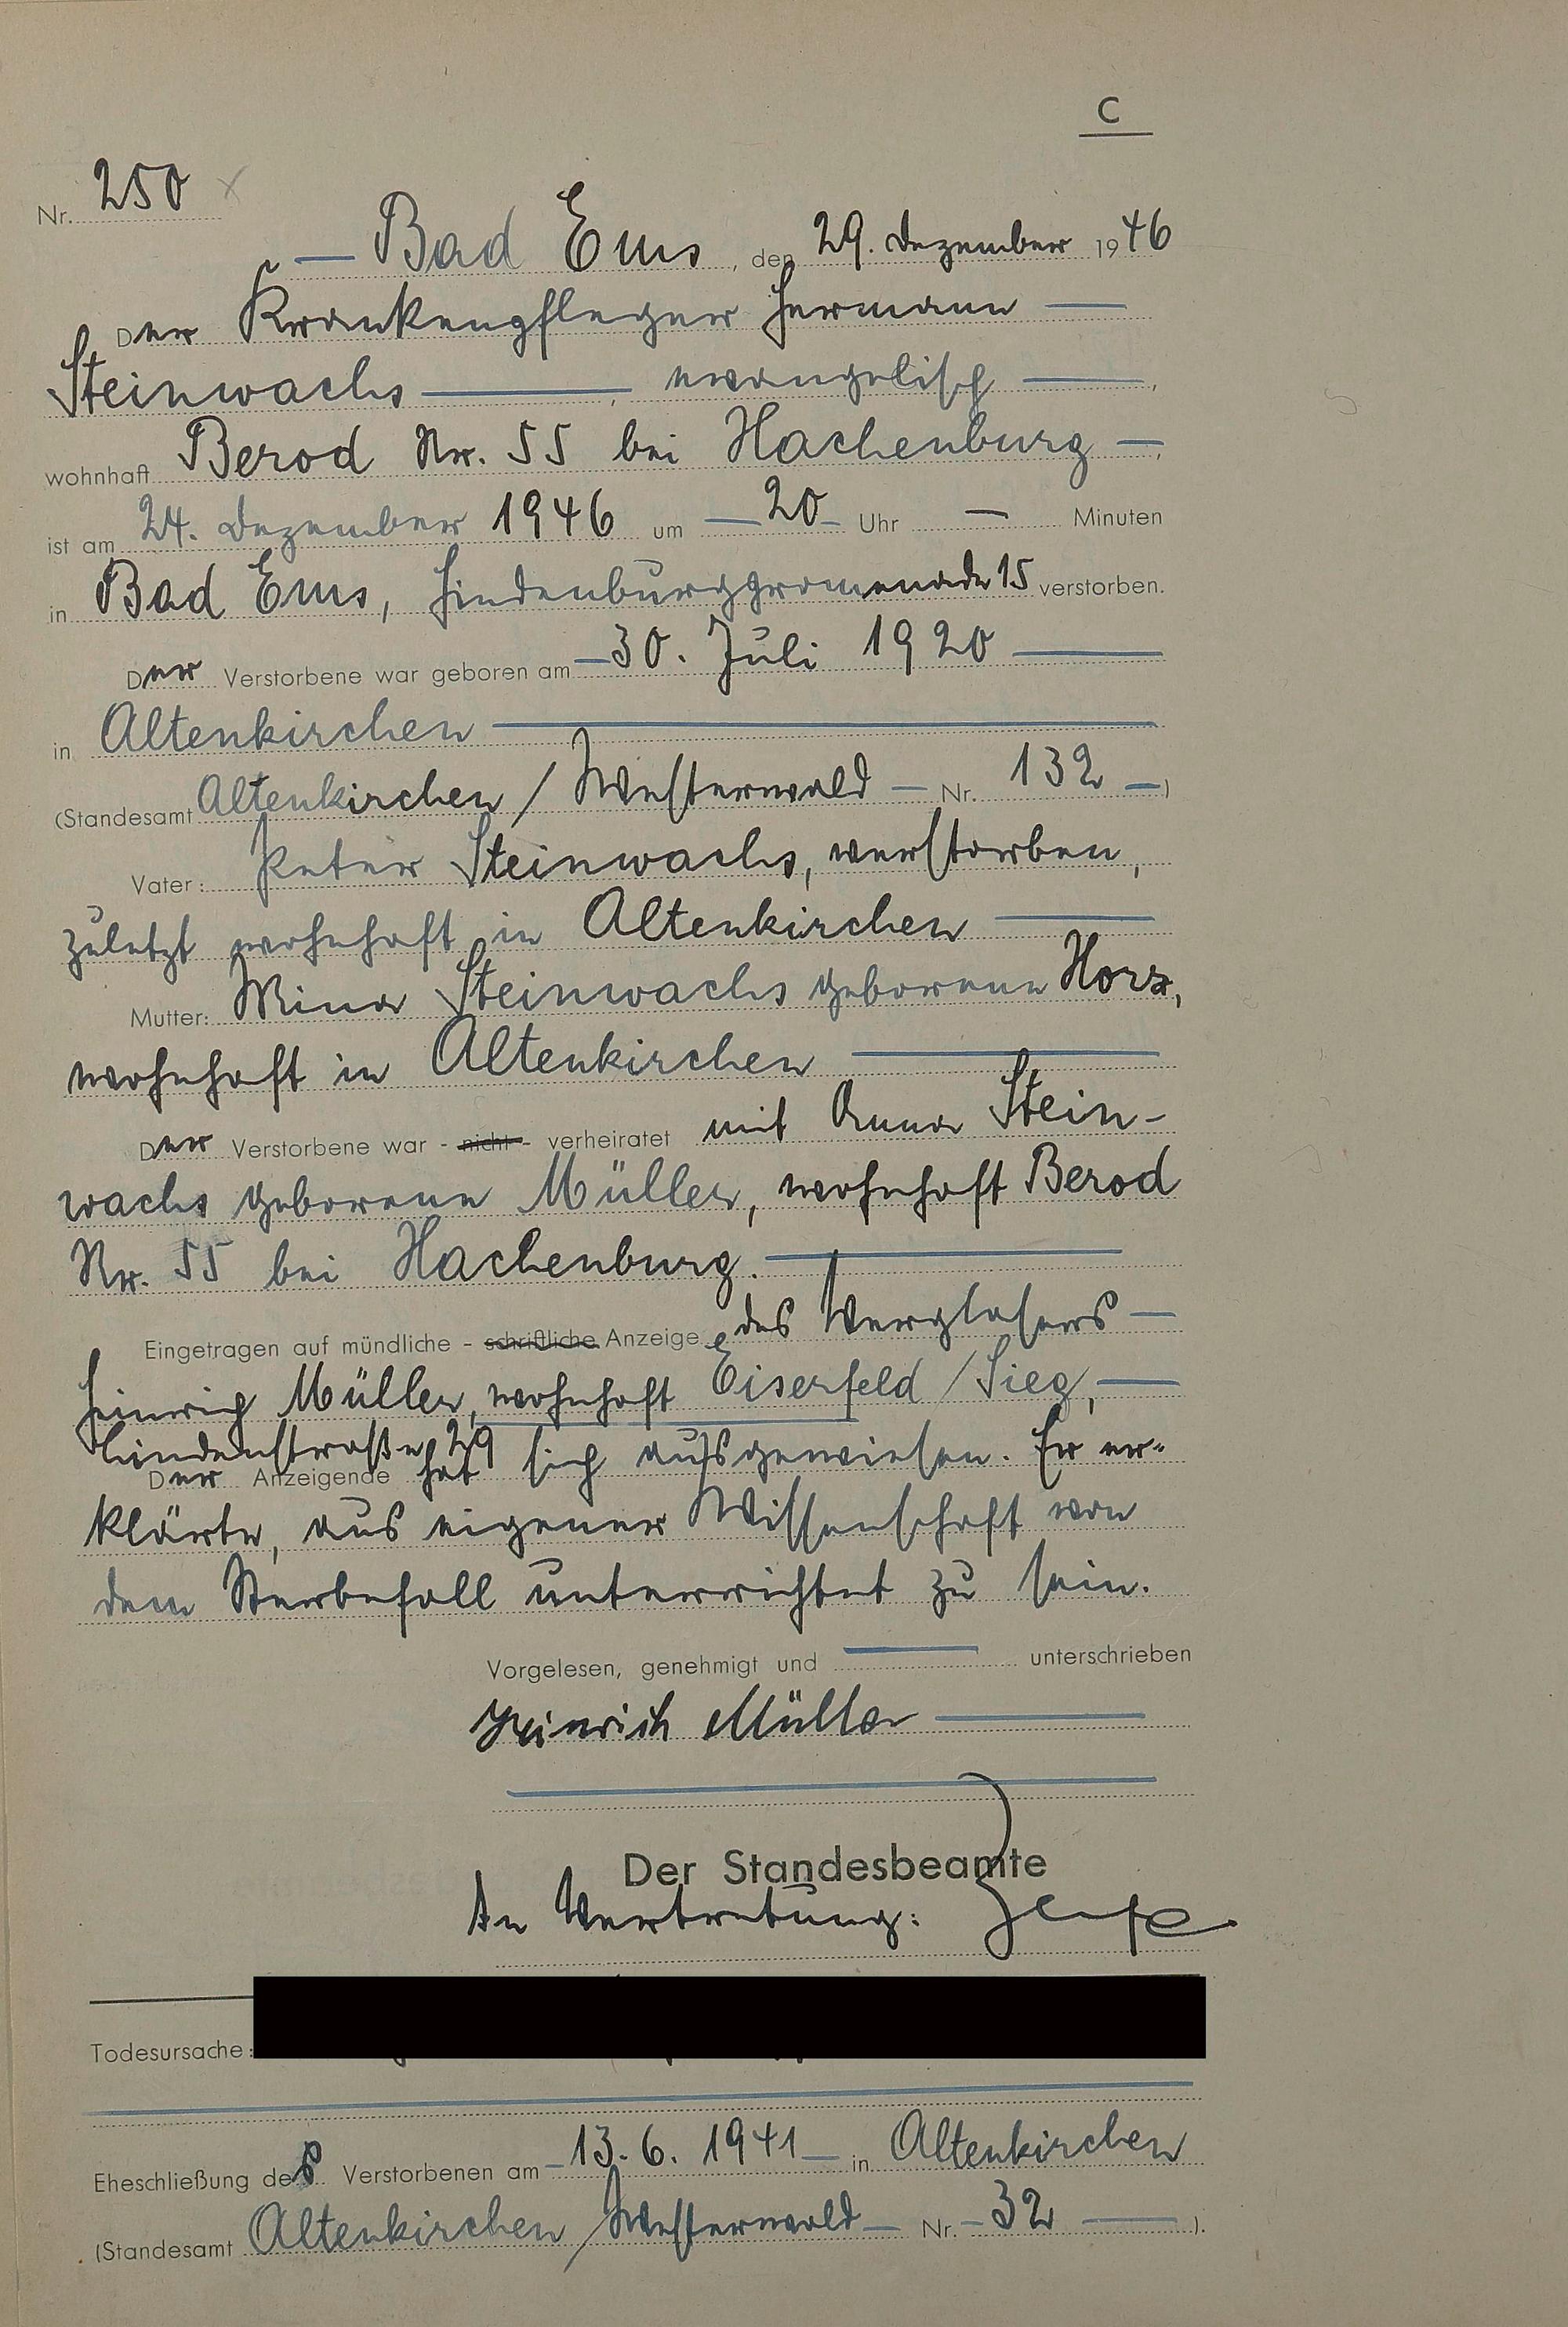 C
Nr. 250
— Bad Ems, den 29. Dezember 1946
Der Krankenpfleger Hermann —
Steinwachs —, evangelisch —,
wohnhaft Berod Nr. 55 bei Hachenburg —,
ist am 24. Dezember 1946 um — 20 — Uhr — Minuten
in Bad Ems, Hindenburgpromenade 15 verstorben.
Der Verstorbene war geboren am — 30. Juli 1920 —
in Altenkirchen —
(Standesamt Altenkirchen / Westerwald — Nr. 132 —)
Vater: Peter Steinwachs, verstorben,
zuletzt wohnhaft in Altenkirchen —
Mutter: Mina Steinwachs geborene Horz,
wohnhaft in Altenkirchen —
Der Verstorbene war - nicht - verheiratet mit Anna Stein-
wachs geborene Müller, wohnhaft Berod
Nr. 55 bei Hachenburg. —
Eingetragen auf mündliche - schriftliche Anzeige des Verglasers —
Heinrich Müller, wohnhaft Eiserfeld / Sieg, —
Lindenstraße 29
Der Anzeigende hat sich ausgewiesen. Er er-
klärte, aus eigener Wissenschaft von
dem Sterbefall unterrichtet zu sein.
Vorgelesen, genehmigt und — unterschrieben
Heinrich Müller —
Der Standesbeamte
In Vertretung:
Todesursache:
Eheschließung des Verstorbenen am — 13. 6. 1941 — in Altenkirchen
(Standesamt Altenkirchen / Westerwald — Nr. — 32 —).